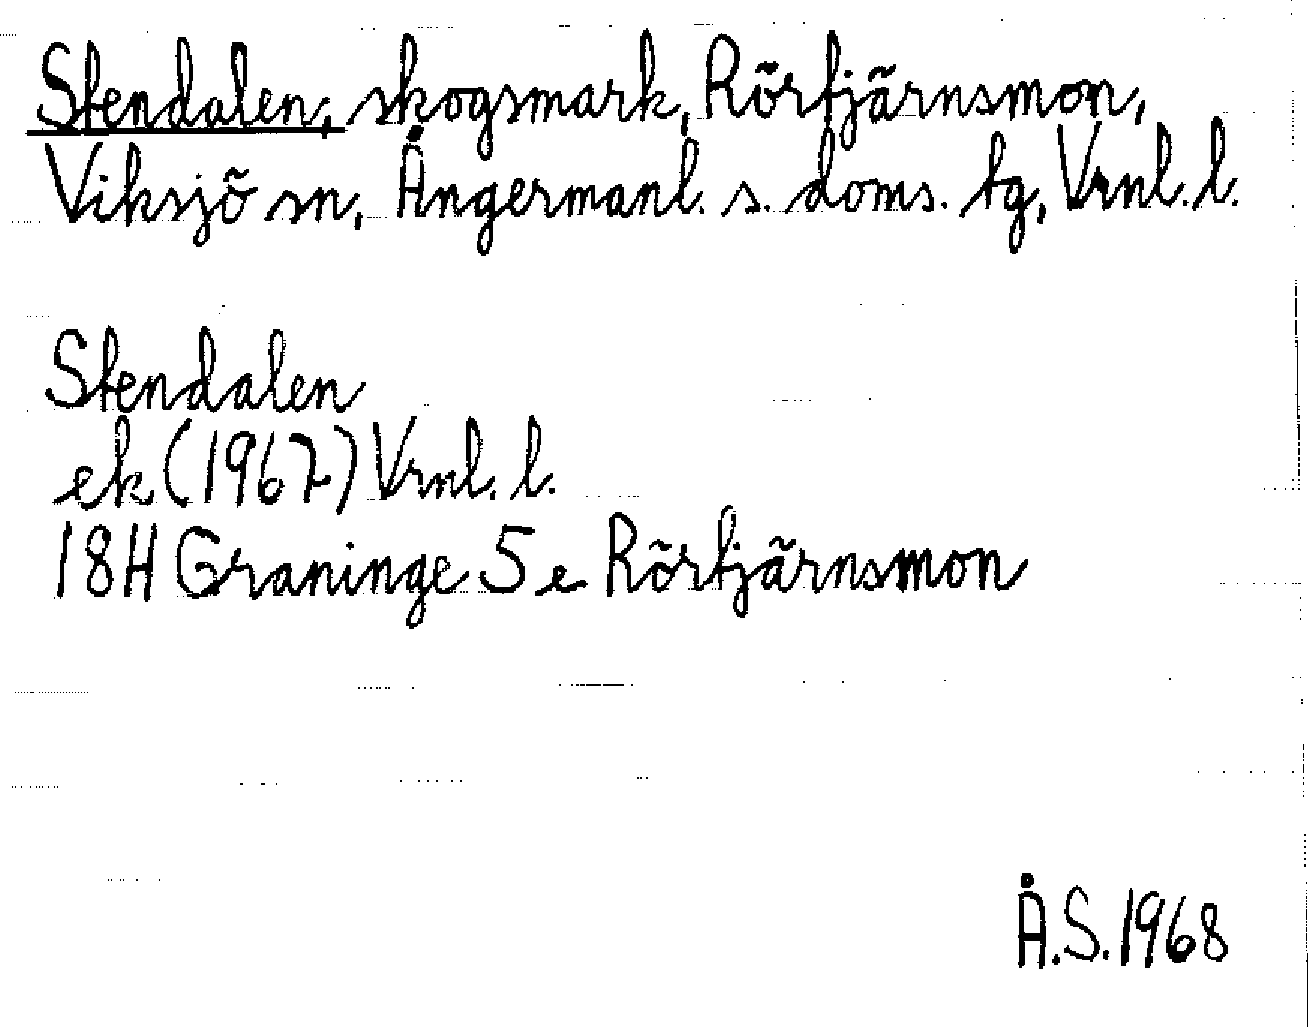 Stendalen, skogsmark, Rörtjärnsmon,
Viksjö sn, Ångermanl. s. doms. tg, Vrnl. l.
Stendalen
ek (1967) Vrnl. l.
18H Graninge 5e Rörtjärnsmon
Å.S. 1968